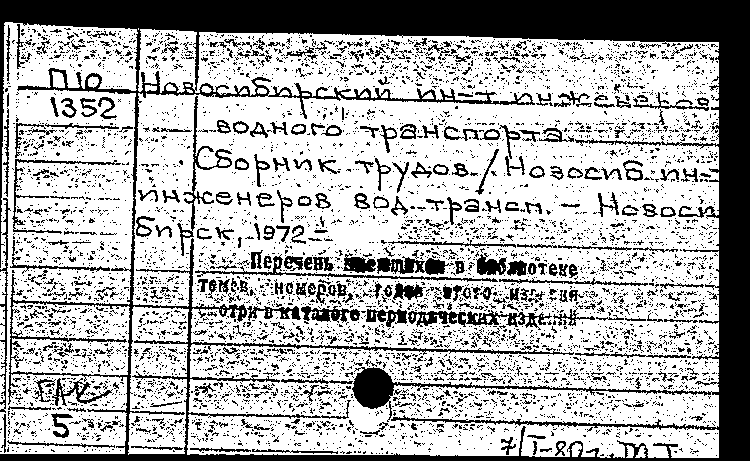 П10
1352
Новосибирский ин-т инженеров
водного транспорта.
Сборник трудов / Новосиб. ин-т
инженеров вод. трансп. — Новоси
бирск, 1972 —
Перечень имеющихся в библиотеке
томов, номеров, годов этого издания
смотри в каталоге периодических изданий
ГАК
5
7/I-80г.